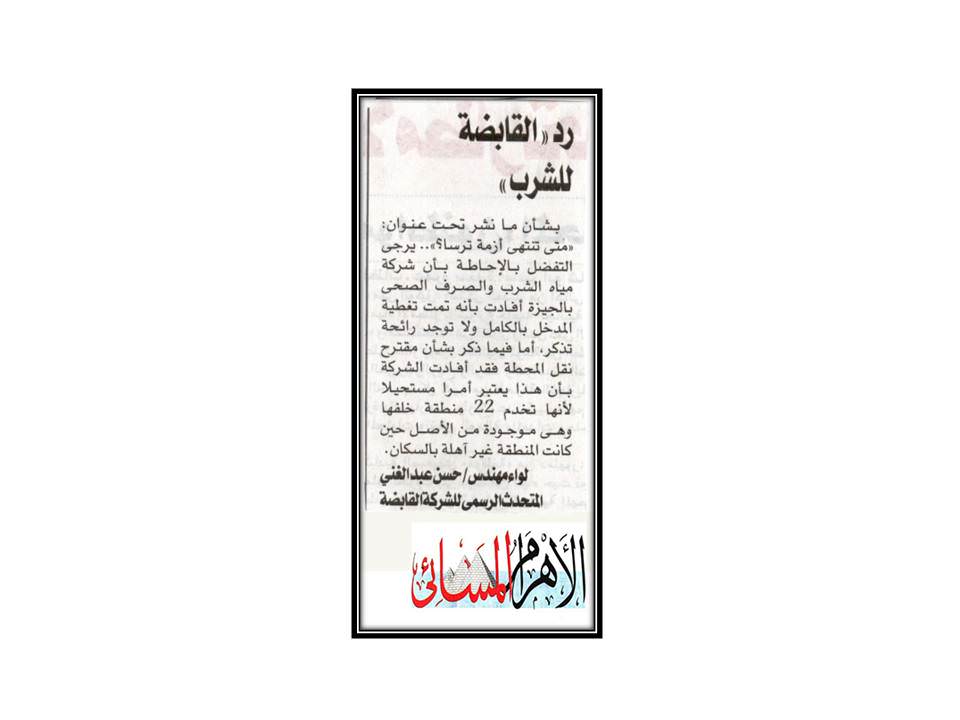 رد «القابضة
للشرب»
بشأن ما نشر تحت عنوان:
«متى تنتهى أزمة ترسا؟».. يرجى
التفضل بالإحاطة بأن شركة
مياه الشرب والصرف الصحى
بالجيزة أفادت بأنه تمت تغطية
المدخل بالكامل ولا توجد رائحة
تذكر، أما فيما ذكر بشأن مقترح
نقل المحطة فقد أفادت الشركة
بأن هذا يعتبر أمرا مستحيلا
لأنها تخدم 22 منطقة خلفها
وهى موجودة من الأصل حين
كانت المنطقة غير آهلة بالسكان.
لواء مهندس/ حسن عبد الغني
المتحدث الرسمى للشركة القابضة
الأهرام المسائى